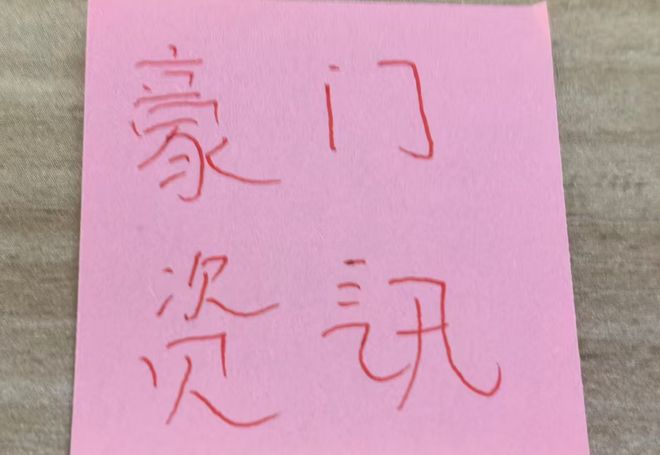 豪门
资讯